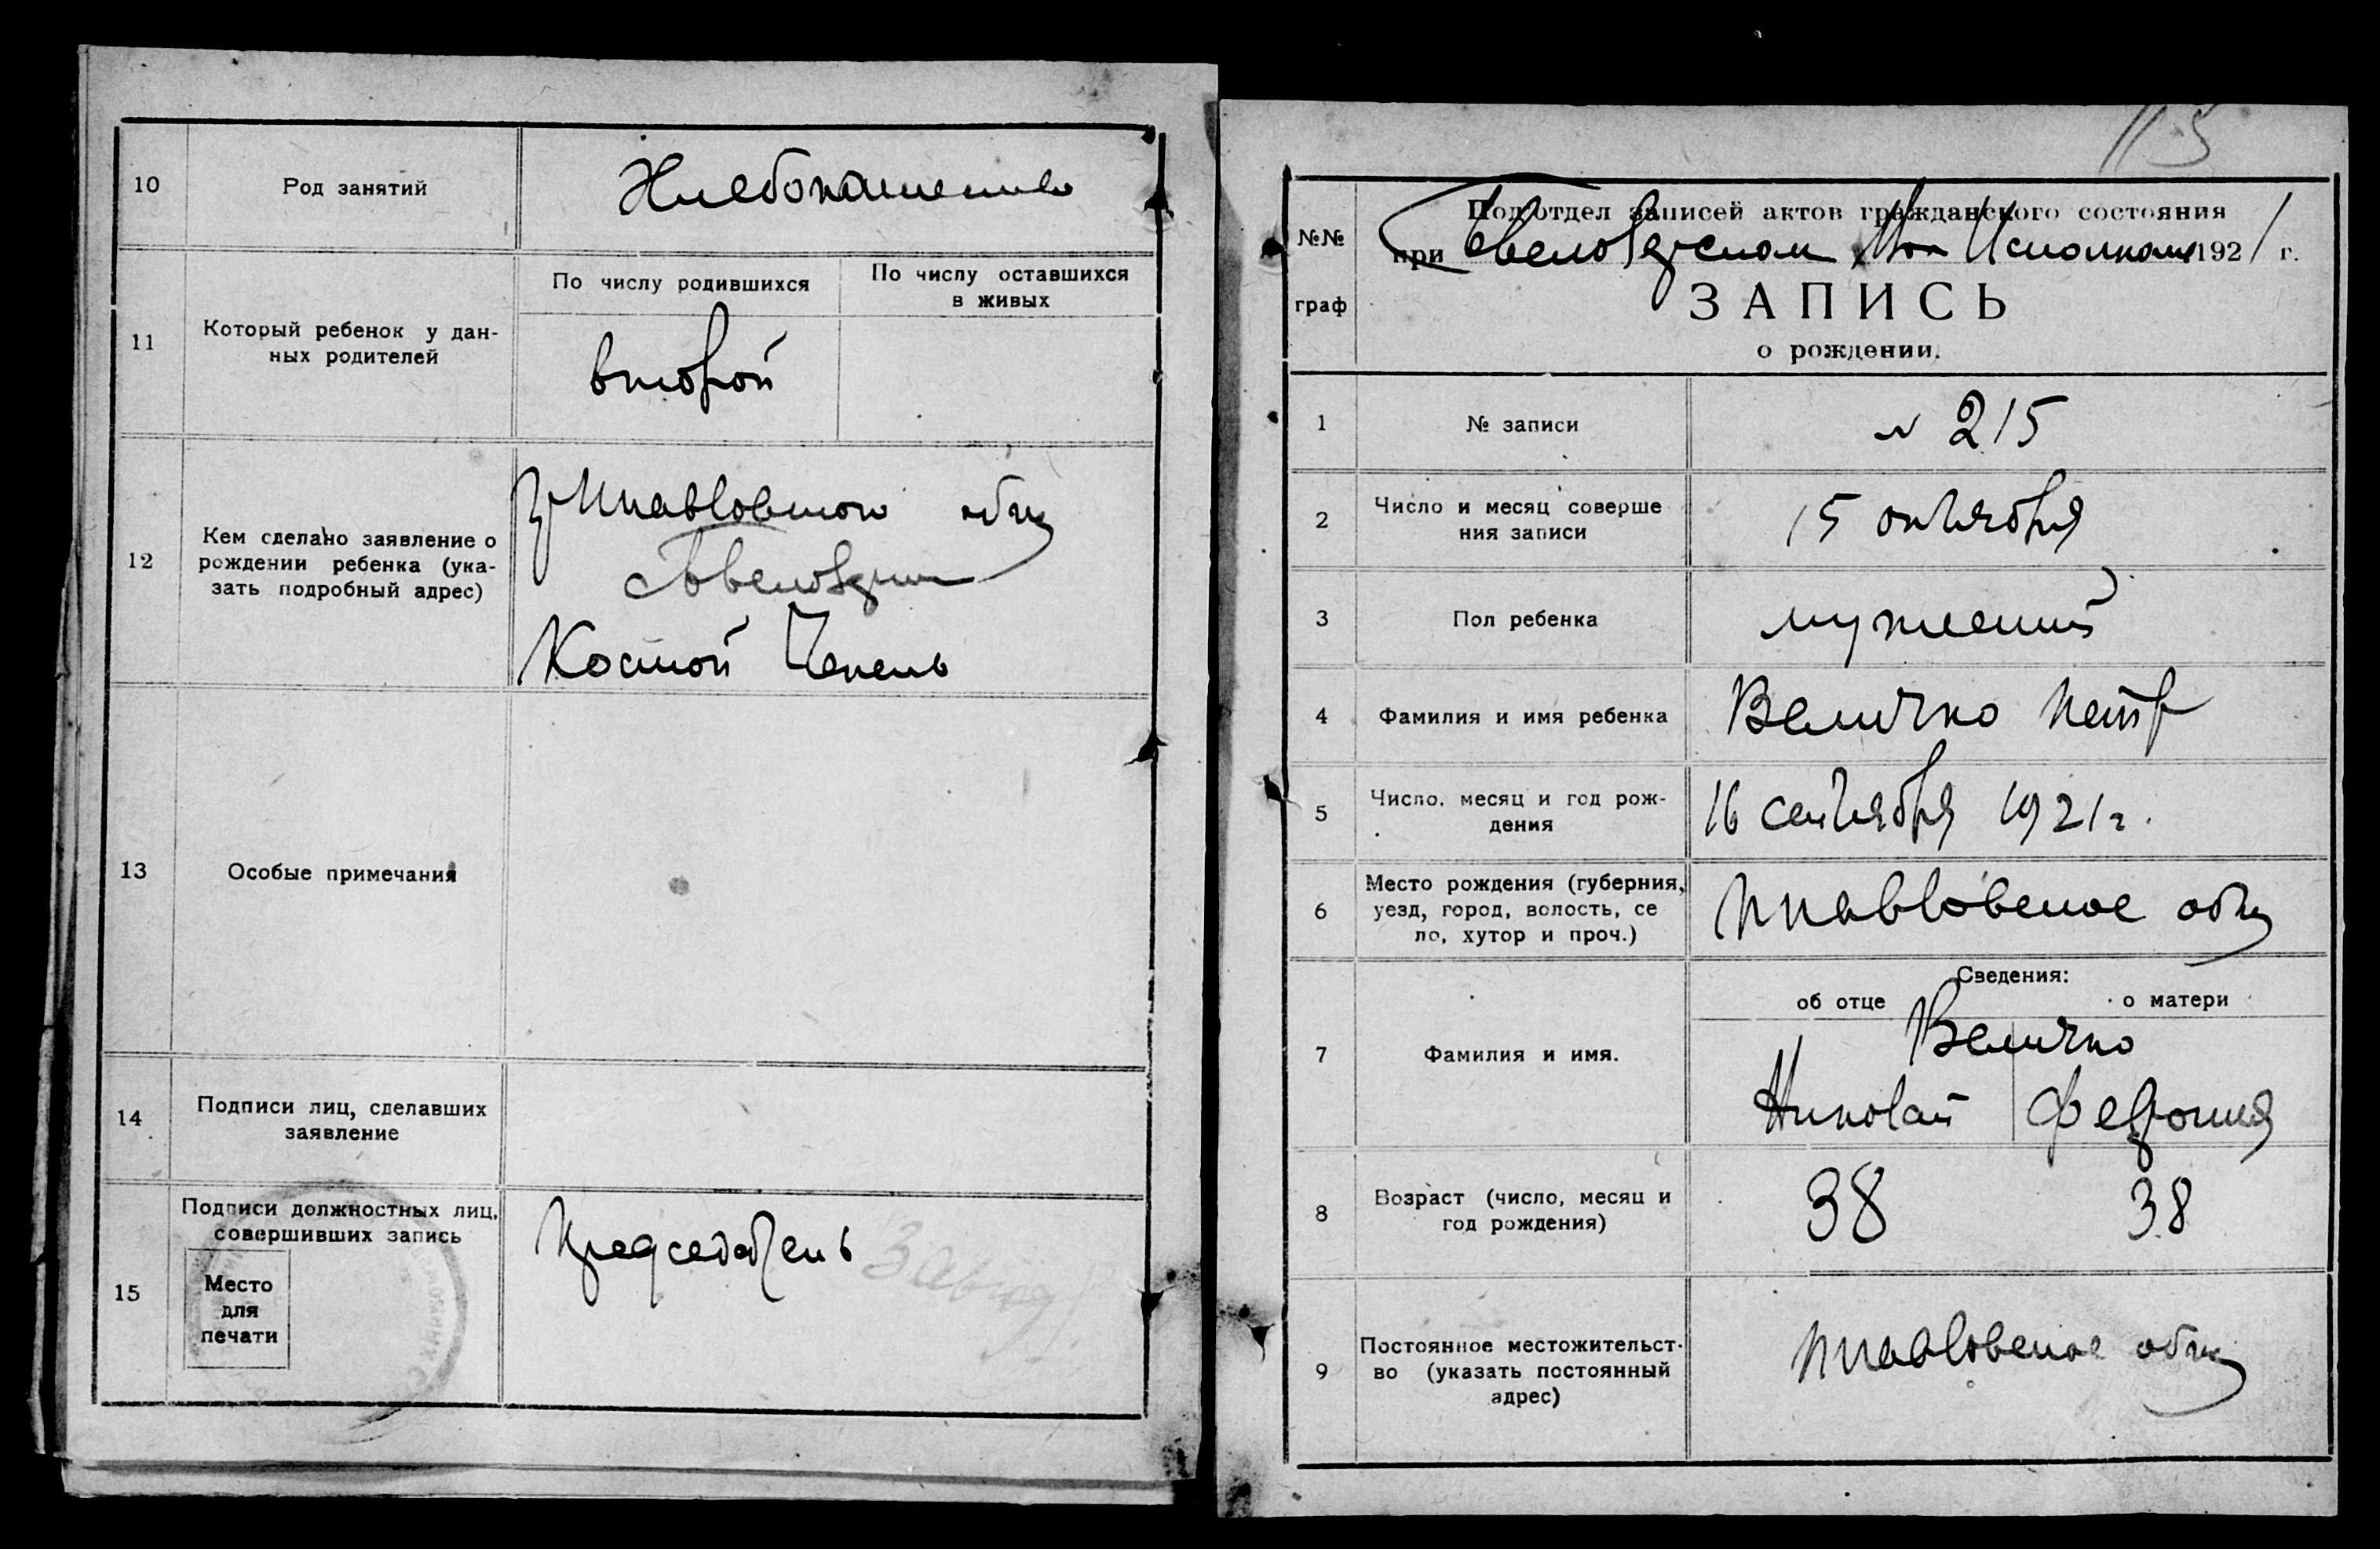 10
Род занятий
Хлебопашество
11
Который ребенок у дан-
ных родителей
По числу родившихся
По числу оставшихся
в живых
второй
12
Кем сделано заявление о
рождении ребенка (ука-
зать подробный адрес)
общ
Костой Чепель
13
Особые примечания
14
Подписи лиц, сделавших
заявление
15
Подписи должностных лиц,
совершивших запись
Место
для
печати
Председатель
115
№№
граф
Подотдел записей актов гражданского состояния
при Исполкоме 1921 г.
ЗАПИСЬ
о рождении.
1
№ записи
№ 215
2
Число и месяц соверше
ния записи
15 октября
3
Пол ребенка
мужеский
4
Фамилия и имя ребенка
Величко Петр
5
Число, месяц и год рож-
дения
16 сентября 1921 г.
6
Место рождения (губерния,
уезд, город, волость, се
ло, хутор и проч.)
общ
7
Фамилия и имя.
Сведения:
об отце
о матери
Величко
Николай
Федошия
8
Возраст (число, месяц и
год рождения)
38
38
9
Постоянное местожительст-
во (указать постоянный
адрес)
общ